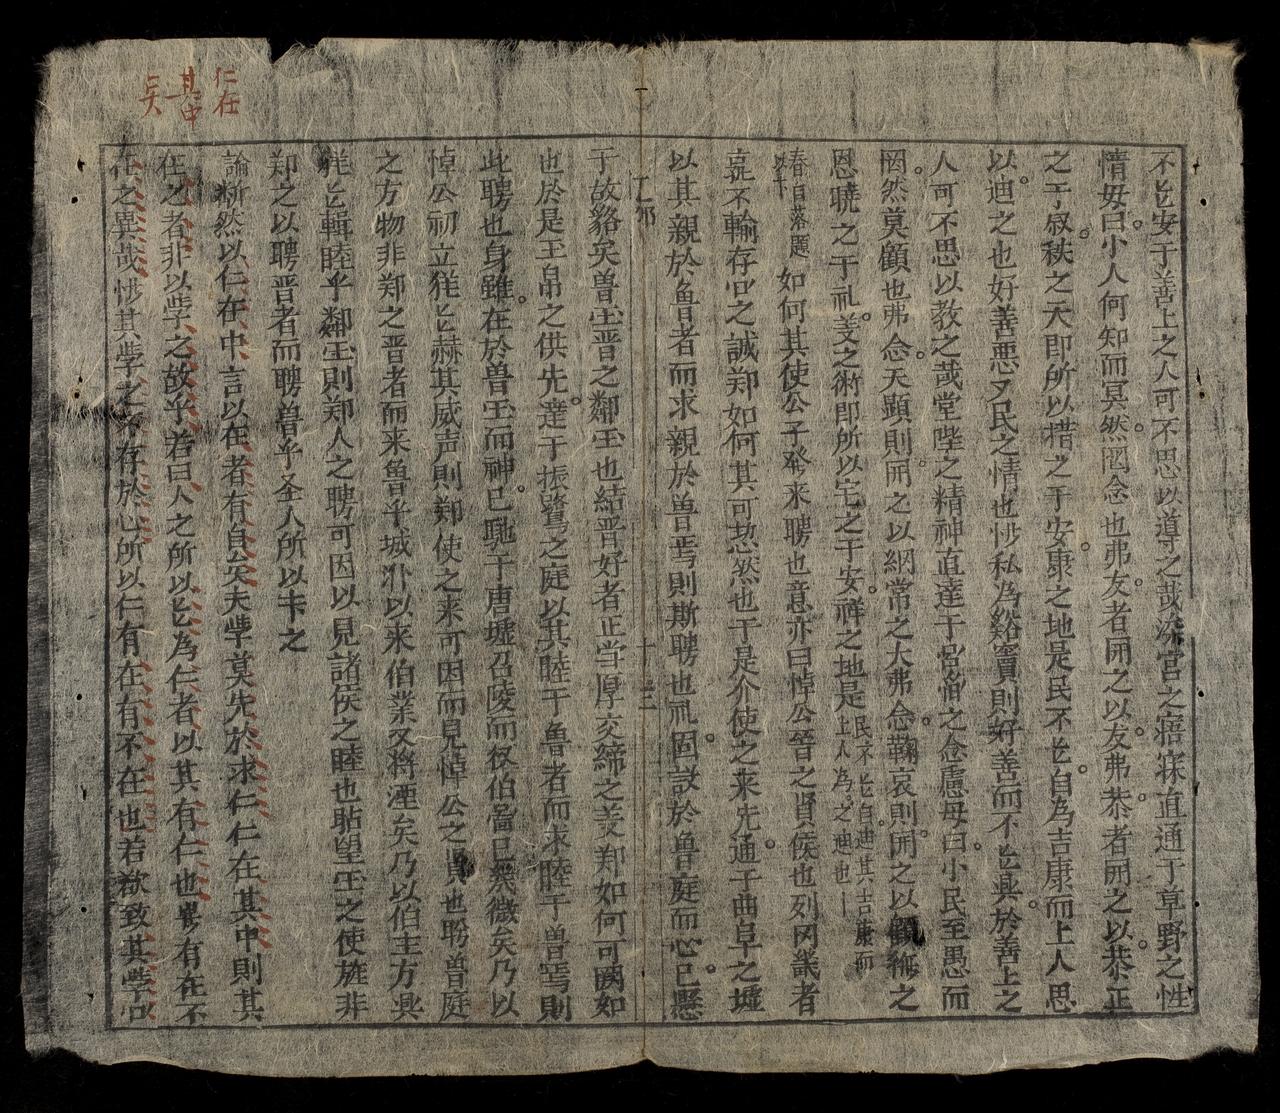 不𠰚安于善上之人可不思以導之哉深宮之寤寐直通于草野之性
情毋曰小人何知而冥然罔念也弗友者開之以友弗恭者開之以恭正
之于叙秩之天即所以措之于安康之地是民不自為吉康而上人思
以迪之也好善惡又民之情也惟私為谿竇則好善而不具於善上之
人可不思以教之哉堂陛之精神直達于宮之念慮毋曰小民至愚而
罔然莫顧也弗念天顯則開之以綱常之大弗念鞠哀則開之以顧之
恩曉之于礼美之術即所以宅之于安祥之地是民不自迪其吉康而上人為之迪也
春自落題如何其使公子發來聘也意亦曰悼公晉之賢侯也列囯幾者
不輸存之誠郑如何其可恝然也于是介使之来先通于曲阜之墟
以其親於魯者而求親於兽焉則斯聘也礼固設於魯庭而心已懸
于故貉矣兽囯晋之鄰囯也結晋好者正当厚交締之美郑如何可闕如
也於是玉帛之供先達于振鷺之庭以其睦于魯者而求睦于兽焉則
此聘也身雖在於兽囯而神已馳于唐墟召陵而後伯啚已衰微矣乃以
悼公初立猶赫其威声則郑使之来可因而見悼公之賢也聘兽庭
之方物非郑之晋者而来魯乎城外以来伯業又将湮矣乃以伯主方具
猶輯睦乎鄰囯則郑人之聘可因以見諸侯之睦也聘望囯之使旌非
郑之以聘晋者而聘兽乎圣人所以卡之
論断然以仁在中言以在者有自矣夫斈莫先於求仁仁在其中則其
在之者非以斈之故乎若曰人之所以為仁者以其有仁也有在不
在之異哉惟其斈之不存於心所以仁有在有不在也若欲致其斈
仁在
其中
矣
十三